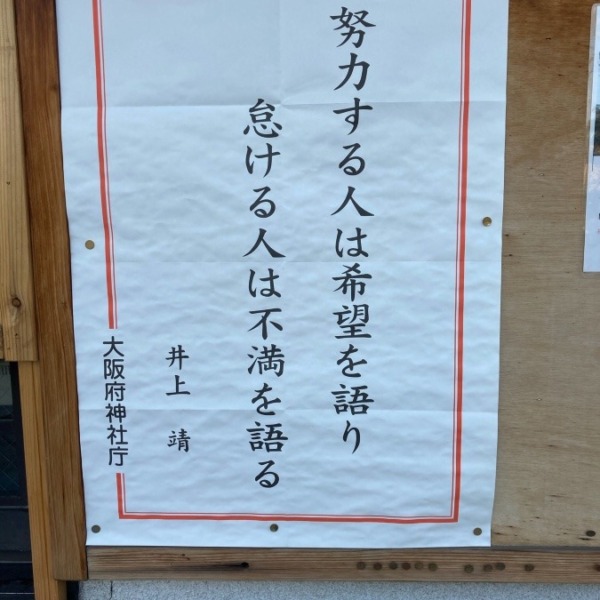 努力する人は希望を語り
怠ける人は不満を語る
井上 靖
大阪府神社庁